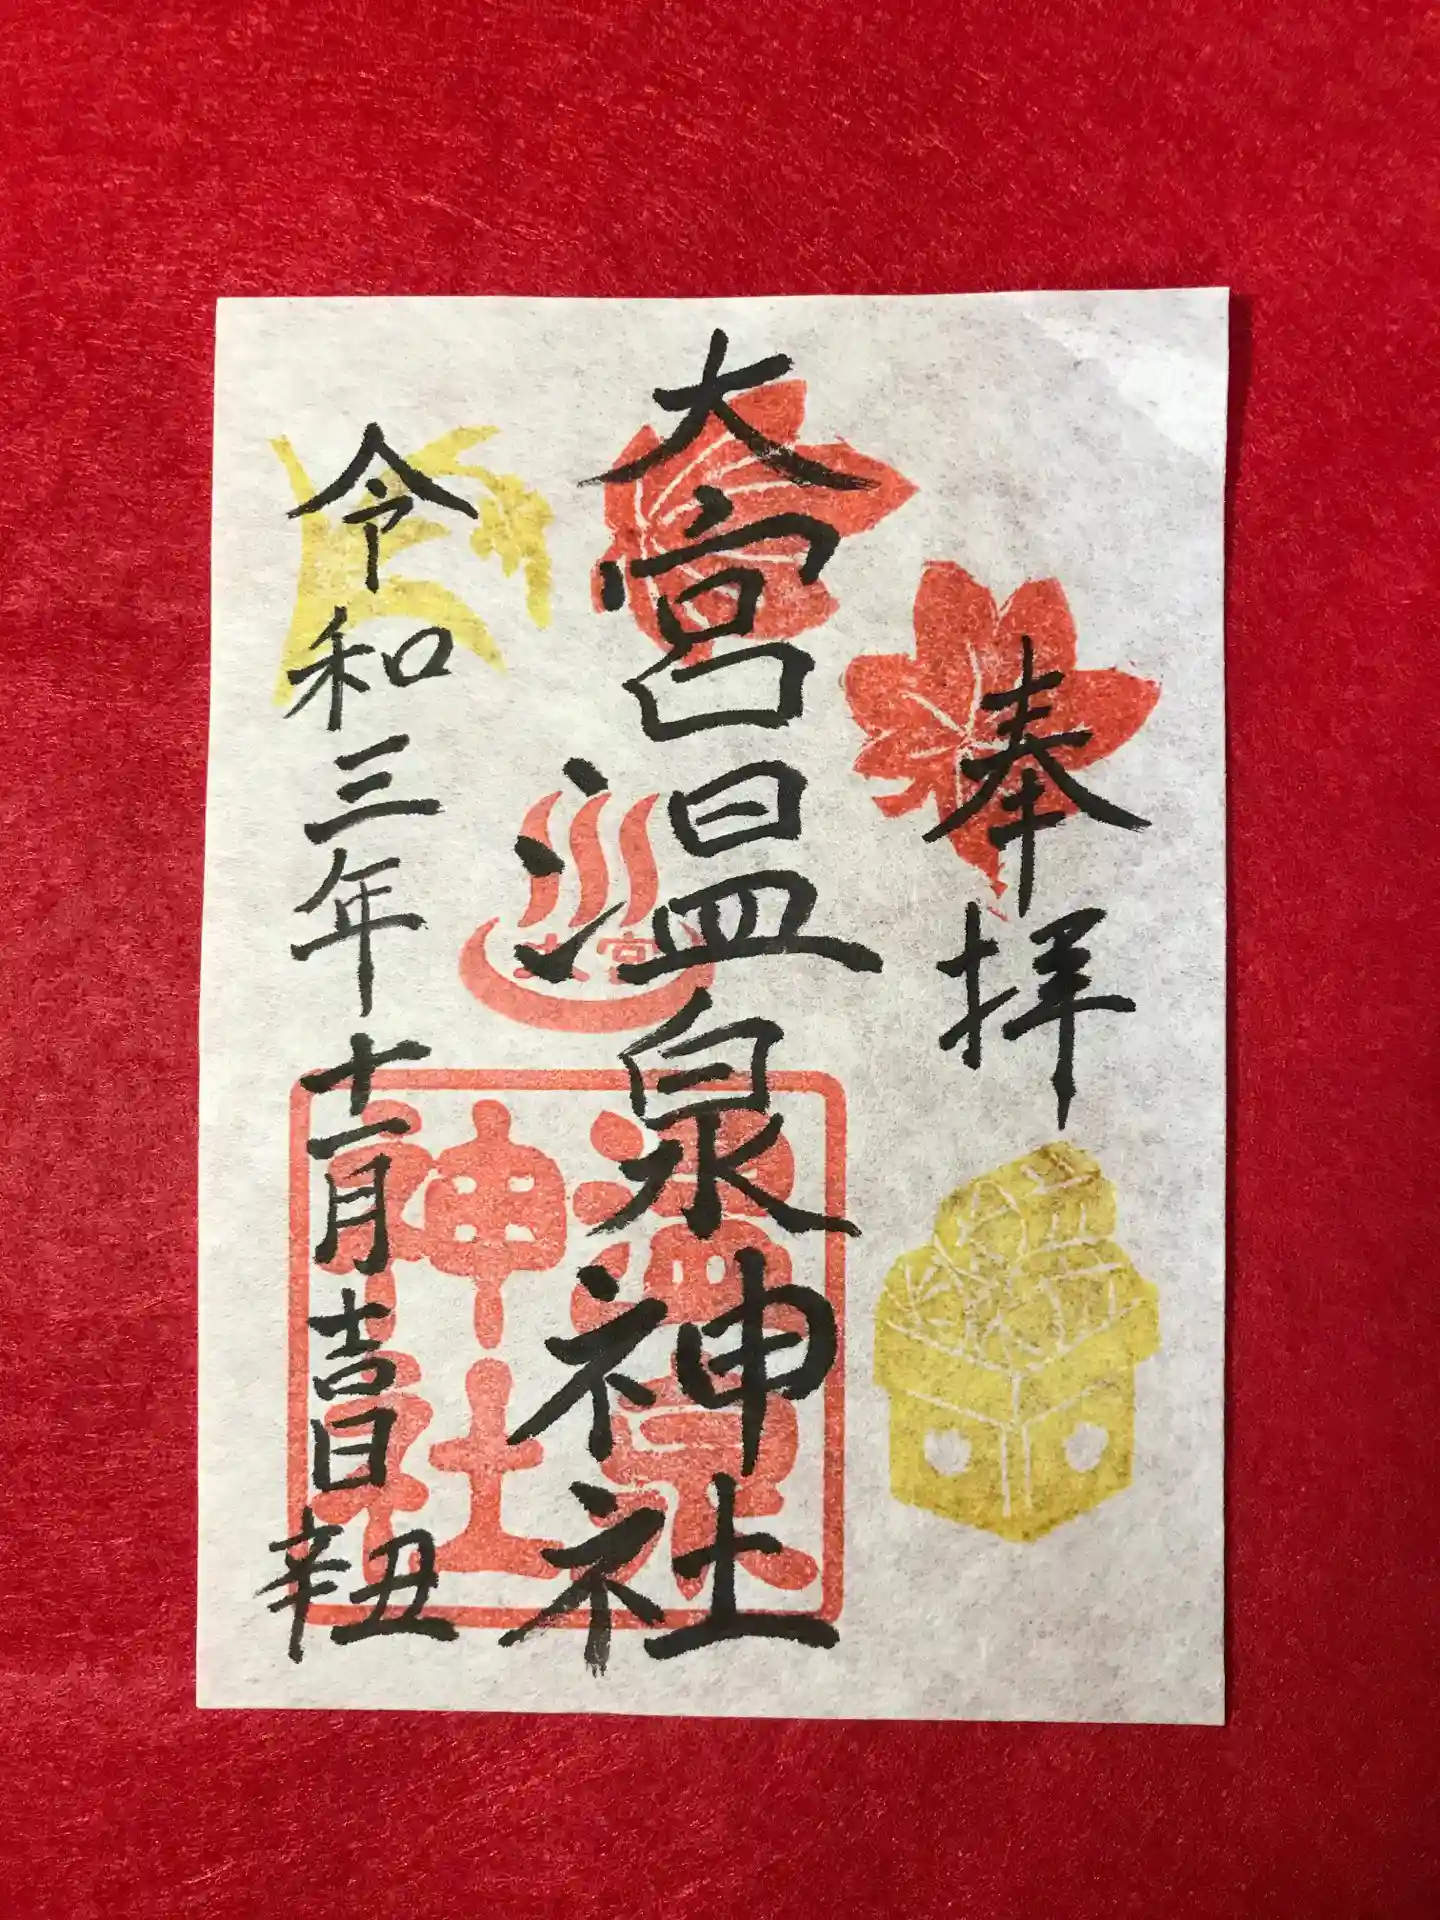 奉拝
大宮温泉神社
大宮
温泉
神社
令和三年十一月吉日 辛丑